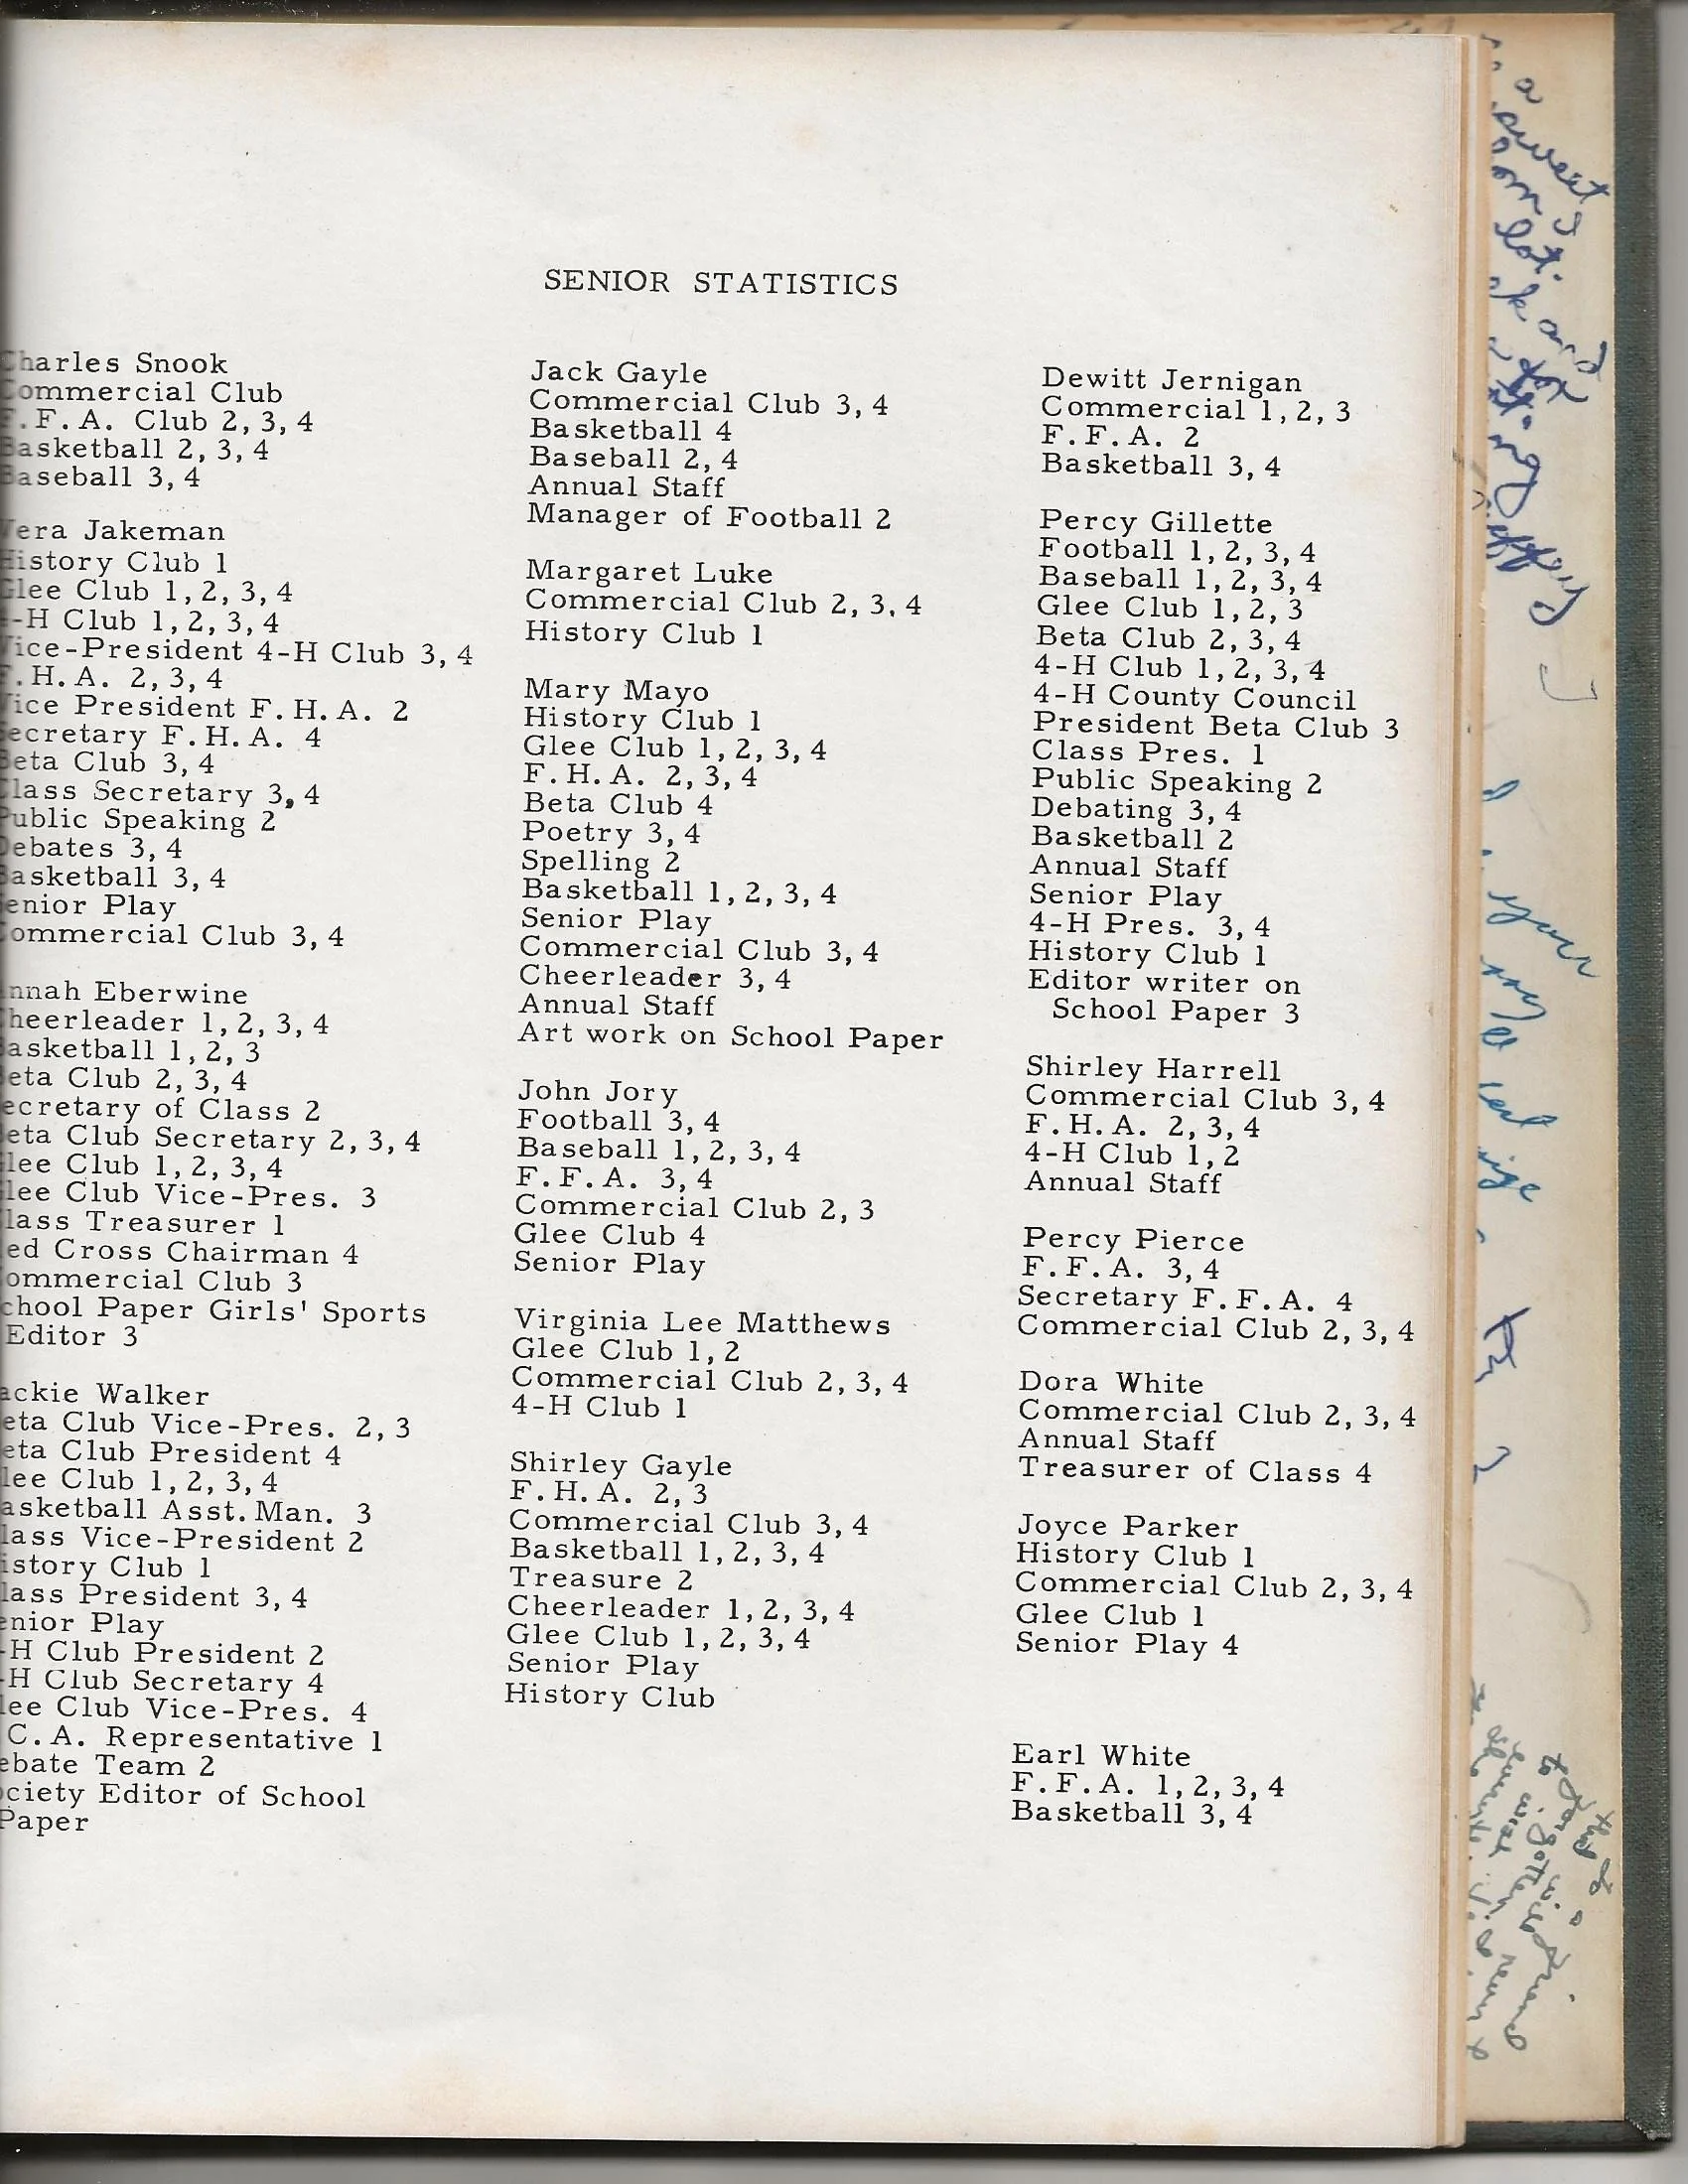 SENIOR STATISTICS
Charles Snook
Commercial Club
F.F.A. Club 2, 3, 4
Basketball 2, 3, 4
Baseball 3, 4
Vera Jakeman
History Club 1
Glee Club 1, 2, 3, 4
4-H Club 1, 2, 3, 4
Vice-President 4-H Club 3, 4
F.H.A. 2, 3, 4
Vice President F.H.A. 2
Secretary F.H.A. 4
Beta Club 3, 4
Class Secretary 3, 4
Public Speaking 2
Debates 3, 4
Basketball 3, 4
Senior Play
Commercial Club 3, 4
nnah Eberwine
heerleader 1, 2, 3, 4
asketball 1, 2, 3
eta Club 2, 3, 4
ecretary of Class 2
eta Club Secretary 2, 3, 4
lee Club 1, 2, 3, 4
lee Club Vice-Pres. 3
lass Treasurer 1
ed Cross Chairman 4
ommercial Club 3
chool Paper Girls' Sports
Editor 3
ackie Walker
eta Club Vice-Pres. 2, 3
eta Club President 4
lee Club 1, 2, 3, 4
asketball Asst. Man. 3
lass Vice-President 2
istory Club 1
lass President 3, 4
enior Play
-H Club President 2
-H Club Secretary 4
lee Club Vice-Pres. 4
C.A. Representative 1
ebate Team 2
ociety Editor of School
Paper
Jack Gayle
Commercial Club 3, 4
Basketball 4
Baseball 2, 4
Annual Staff
Manager of Football 2
Margaret Luke
Commercial Club 2, 3, 4
History Club 1
Mary Mayo
History Club 1
Glee Club 1, 2, 3, 4
F.H.A. 2, 3, 4
Beta Club 4
Poetry 3, 4
Spelling 2
Basketball 1, 2, 3, 4
Senior Play
Commercial Club 3, 4
Cheerleader 3, 4
Annual Staff
Art work on School Paper
John Jory
Football 3, 4
Baseball 1, 2, 3, 4
F.F.A. 3, 4
Commercial Club 2, 3
Glee Club 4
Senior Play
Virginia Lee Matthews
Glee Club 1, 2
Commercial Club 2, 3, 4
4-H Club 1
Shirley Gayle
F.H.A. 2, 3
Commercial Club 3, 4
Basketball 1, 2, 3, 4
Treasure 2
Cheerleader 1, 2, 3, 4
Glee Club 1, 2, 3, 4
Senior Play
History Club
Dewitt Jernigan
Commercial 1, 2, 3
F.F.A. 2
Basketball 3, 4
Percy Gillette
Football 1, 2, 3, 4
Baseball 1, 2, 3, 4
Glee Club 1, 2, 3
Beta Club 2, 3, 4
4-H Club 1, 2, 3, 4
4-H County Council
President Beta Club 3
Class Pres. 1
Public Speaking 2
Debating 3, 4
Basketball 2
Annual Staff
Senior Play
4-H Pres. 3, 4
History Club 1
Editor writer on
School Paper 3
Shirley Harrell
Commercial Club 3, 4
F.H.A. 2, 3, 4
4-H Club 1, 2
Annual Staff
Percy Pierce
F.F.A. 3, 4
Secretary F.F.A. 4
Commercial Club 2, 3, 4
Dora White
Commercial Club 2, 3, 4
Annual Staff
Treasurer of Class 4
Joyce Parker
History Club 1
Commercial Club 2, 3, 4
Glee Club 1
Senior Play 4
Earl White
F.F.A. 1, 2, 3, 4
Basketball 3, 4
a sweet
lot.
and
your